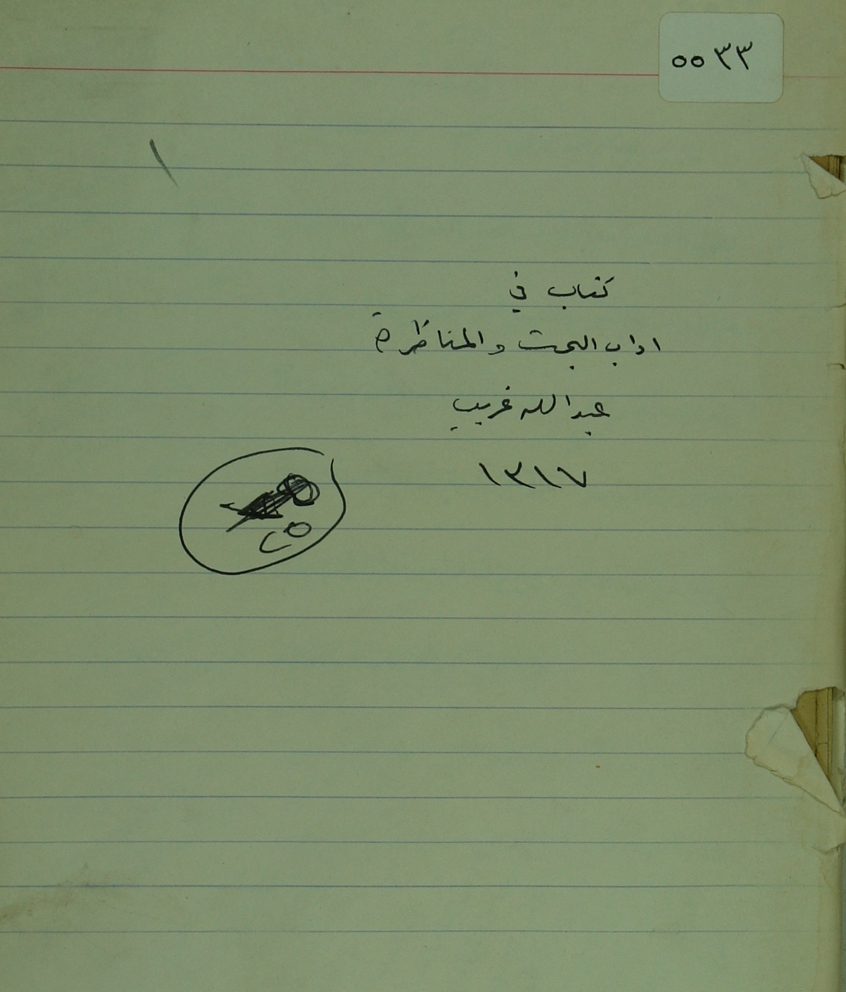 ٥٥٣٣
١
كتاب في
اداب البحث والمناظرة
عبد الله غريب
١٣١٧